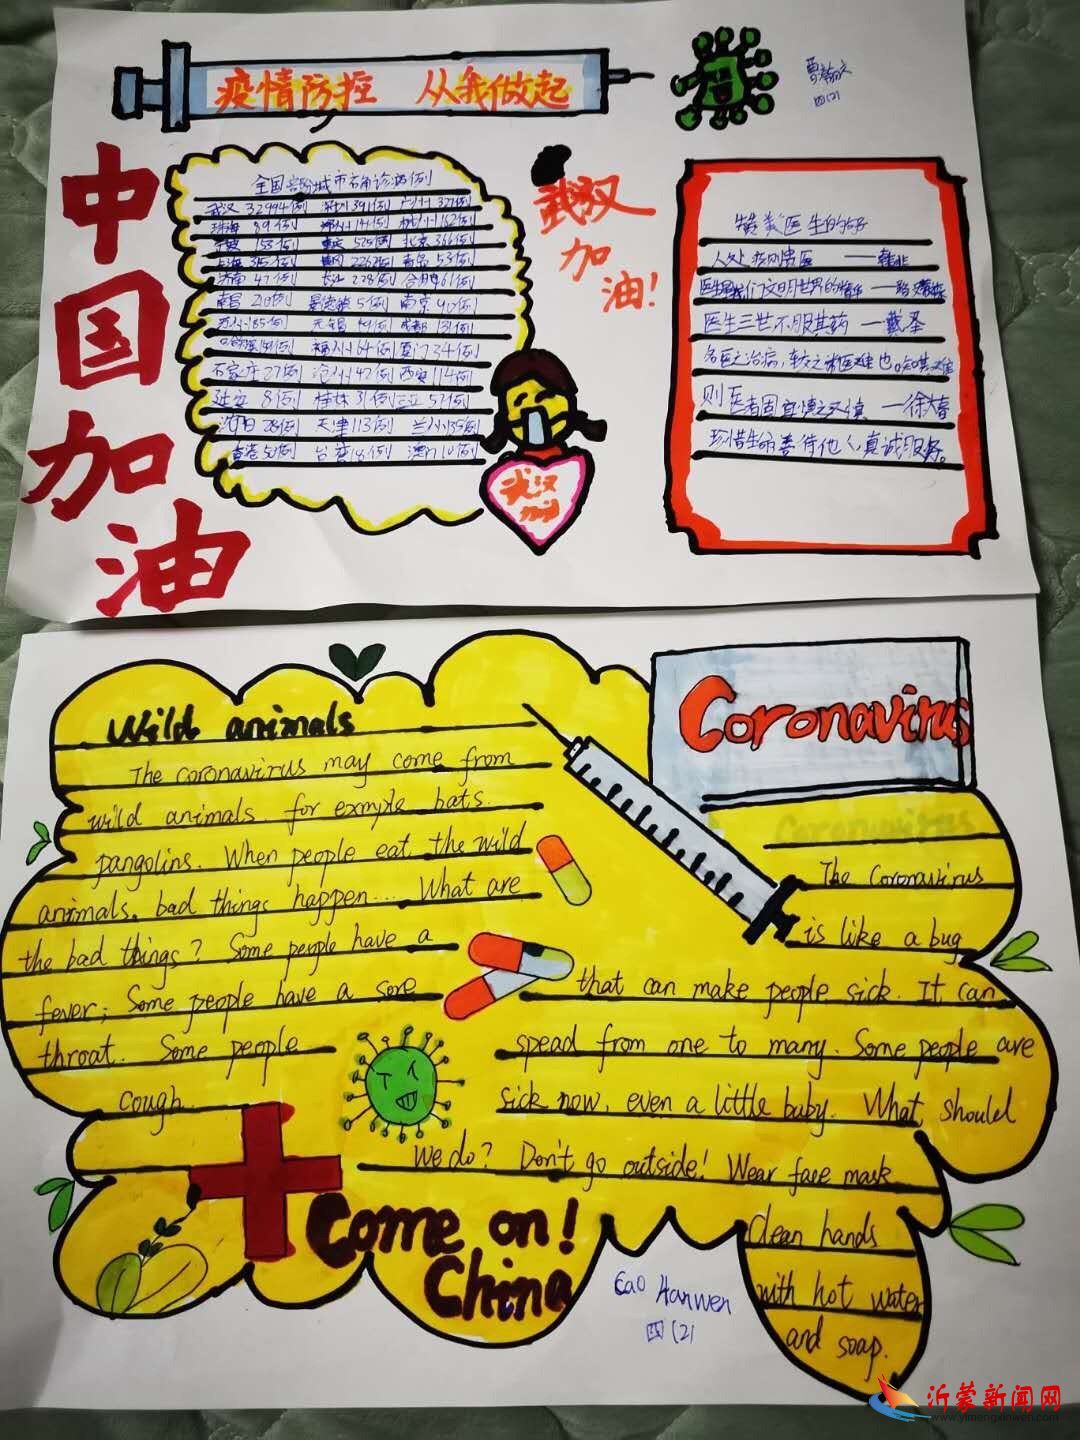 疫情防控 从我做起
四(2)
中国加油
全国部分城市确诊病例
武汉 32994例 深圳391例 广州327例
珠海 89例 郑州141例 杭州162例
宁波 153例 重庆 525例 北京 366例
上海 315例 黄冈 2262例 青岛 53例
济南 47例 长沙 228例 合肥161例
南昌 210例 景德镇 5例 南京 90例
无锡 49例 成都 131例
福州 64例 厦门 34例
石家庄 27例 沧州 42例 西安 114例
延安 8例 桂林 31例 三亚 52例
沈阳 28例 天津 113例 兰州35例
香港 50例 台湾 18例 澳门 10例
武汉
加
油!
武汉
加油
赞美医生的好
医生三世不服其药 —戴圣
珍惜生命善待他人真诚服务。
Wild animals
The coronavirus may come from
wild animals. for exmple bats.
pangolins. When people eat the wild
animals. bad things happen... What are
the bad things? Some people have a
fever; Some people have a sore
throat. Some people
cough.
Coronavirus
Coronavirus
The Coronavirus
is like a bug
that can make people sick. It can
spead from one to many. Some people are
sick now, even a little baby. What should
we do? Don't go outside! Wear face mask
Clean hands
with hot water
and soap.
Come on!
China
Cao Hanwen
四(2)
沂蒙新闻网
www.yimengxinwen.com